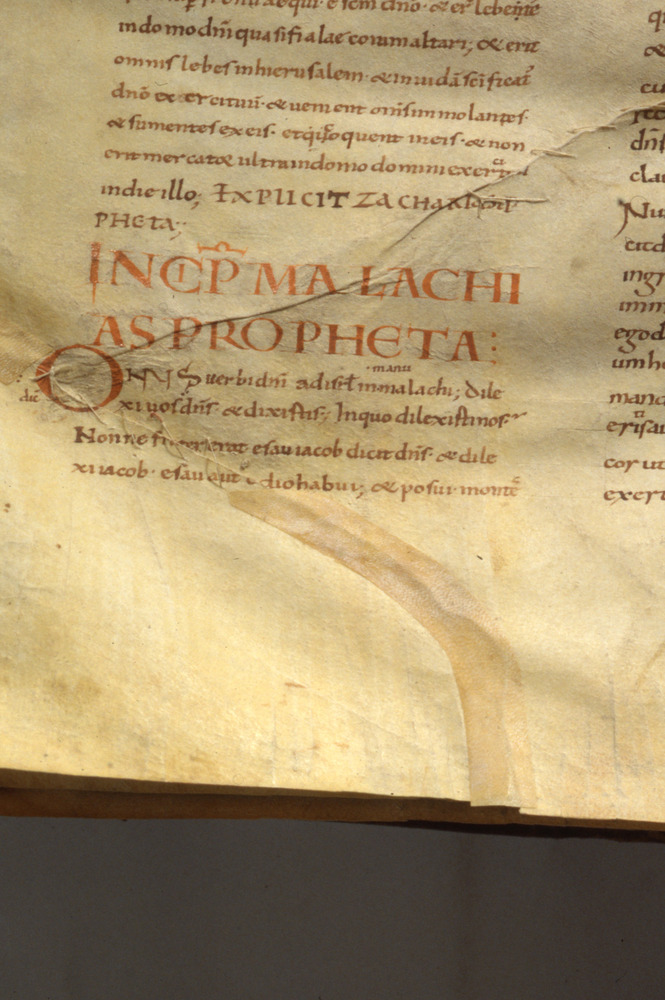 in domo dñi quasi fialae coram altari; & erit
omnis lebes in hierusalem & in iuda sc̄ificat̄
dnō exercituū & venient om̄s immolantes
& sumentes ex eis & coquent in eis & non
erit mercator ultra in domo domini exercitūu
in die illo; EXPLICIT ZACHARIAS PRO
PHETA;
INCIP̄ MALACHI
AS PROPHETA:
ONUS verbi dn̄i ad isrl̄ in manu malachi; Dile
xi vos dic̄ dn̄s & dixistis; In quo dilexisti nos
Nonne frater erat esau iacob dicit dn̄s & dile
xi iacob esau autē odio habui; & posui montē
q
&
cu
dn̄s
clau
Nu
cicd
ingr
imm
egod
um ho
manda
erisau
cor ut
exerc